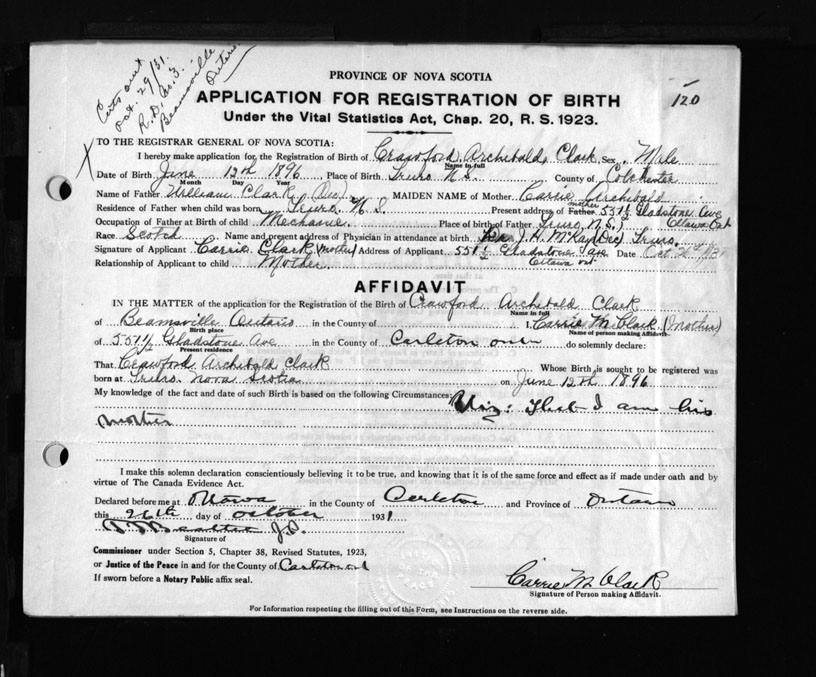 Certs out
Oct. 29/31.
R.D. No. 3.
Beamsville
Ontario
120
PROVINCE OF NOVA SCOTIA
APPLICATION FOR REGISTRATION OF BIRTH
Under the Vital Statistics Act, Chap. 20, R. S. 1923.
X TO THE REGISTRAR GENERAL OF NOVA SCOTIA:
I hereby make application for the Registration of Birth of Crawford Archibald Clark Sex Male
Name in full
Date of Birth June 12th 1896 Place of Birth Truro N.S. County of Colchester
Month Day Year
Name of Father William Clark (Dec) MAIDEN NAME of Mother Carrie Archibald
Residence of Father when child was born Truro N.S. Present address of Father mother 557½ Gladstone Ave
Ottawa Ont
Occupation of Father at Birth of child Place of birth of Father Truro N.S.
Race Scotch Name and present address of Physician in attendance at birth Dr. J. H. McKay (Dec) Truro.
Signature of Applicant Carrie Clark (mother) Address of Applicant 557½ Gladstone Ave Date Oct 26th 1931
Ottawa Ont
Relationship of Applicant to child Mother.
AFFIDAVIT
IN THE MATTER of the application for the Registration of the Birth of Crawford Archibald Clark
Name in full
of Beamsville Ontario in the County of I, Carrie M. Clark (Mother)
Birth place Name of person making Affidavit
of 557½ Gladstone Ave in the County of Carleton do solemnly declare:
Present residence
That Crawford Archibald Clark Whose Birth is sought to be registered was
born at Truro Nova Scotia on June 12th 1896
My knowledge of the fact and date of such Birth is based on the following Circumstances: Viz: That I am his
mother
I make this solemn declaration conscientiously believing it to be true, and knowing that it is of the same force and effect as if made under oath and by
virtue of The Canada Evidence Act.
Declared before me at Ottawa in the County of Carleton and Province of Ontario
this 26th day of October 1931
J.P.
Signature of
Commissioner under Section 5, Chapter 38, Revised Statutes, 1923,
or Justice of the Peace in and for the County of Carleton Ont
If sworn before a Notary Public affix seal.
Carrie M. Clark
Signature of Person making Affidavit.
For Information respecting the filling out of this Form, see Instructions on the reverse side.